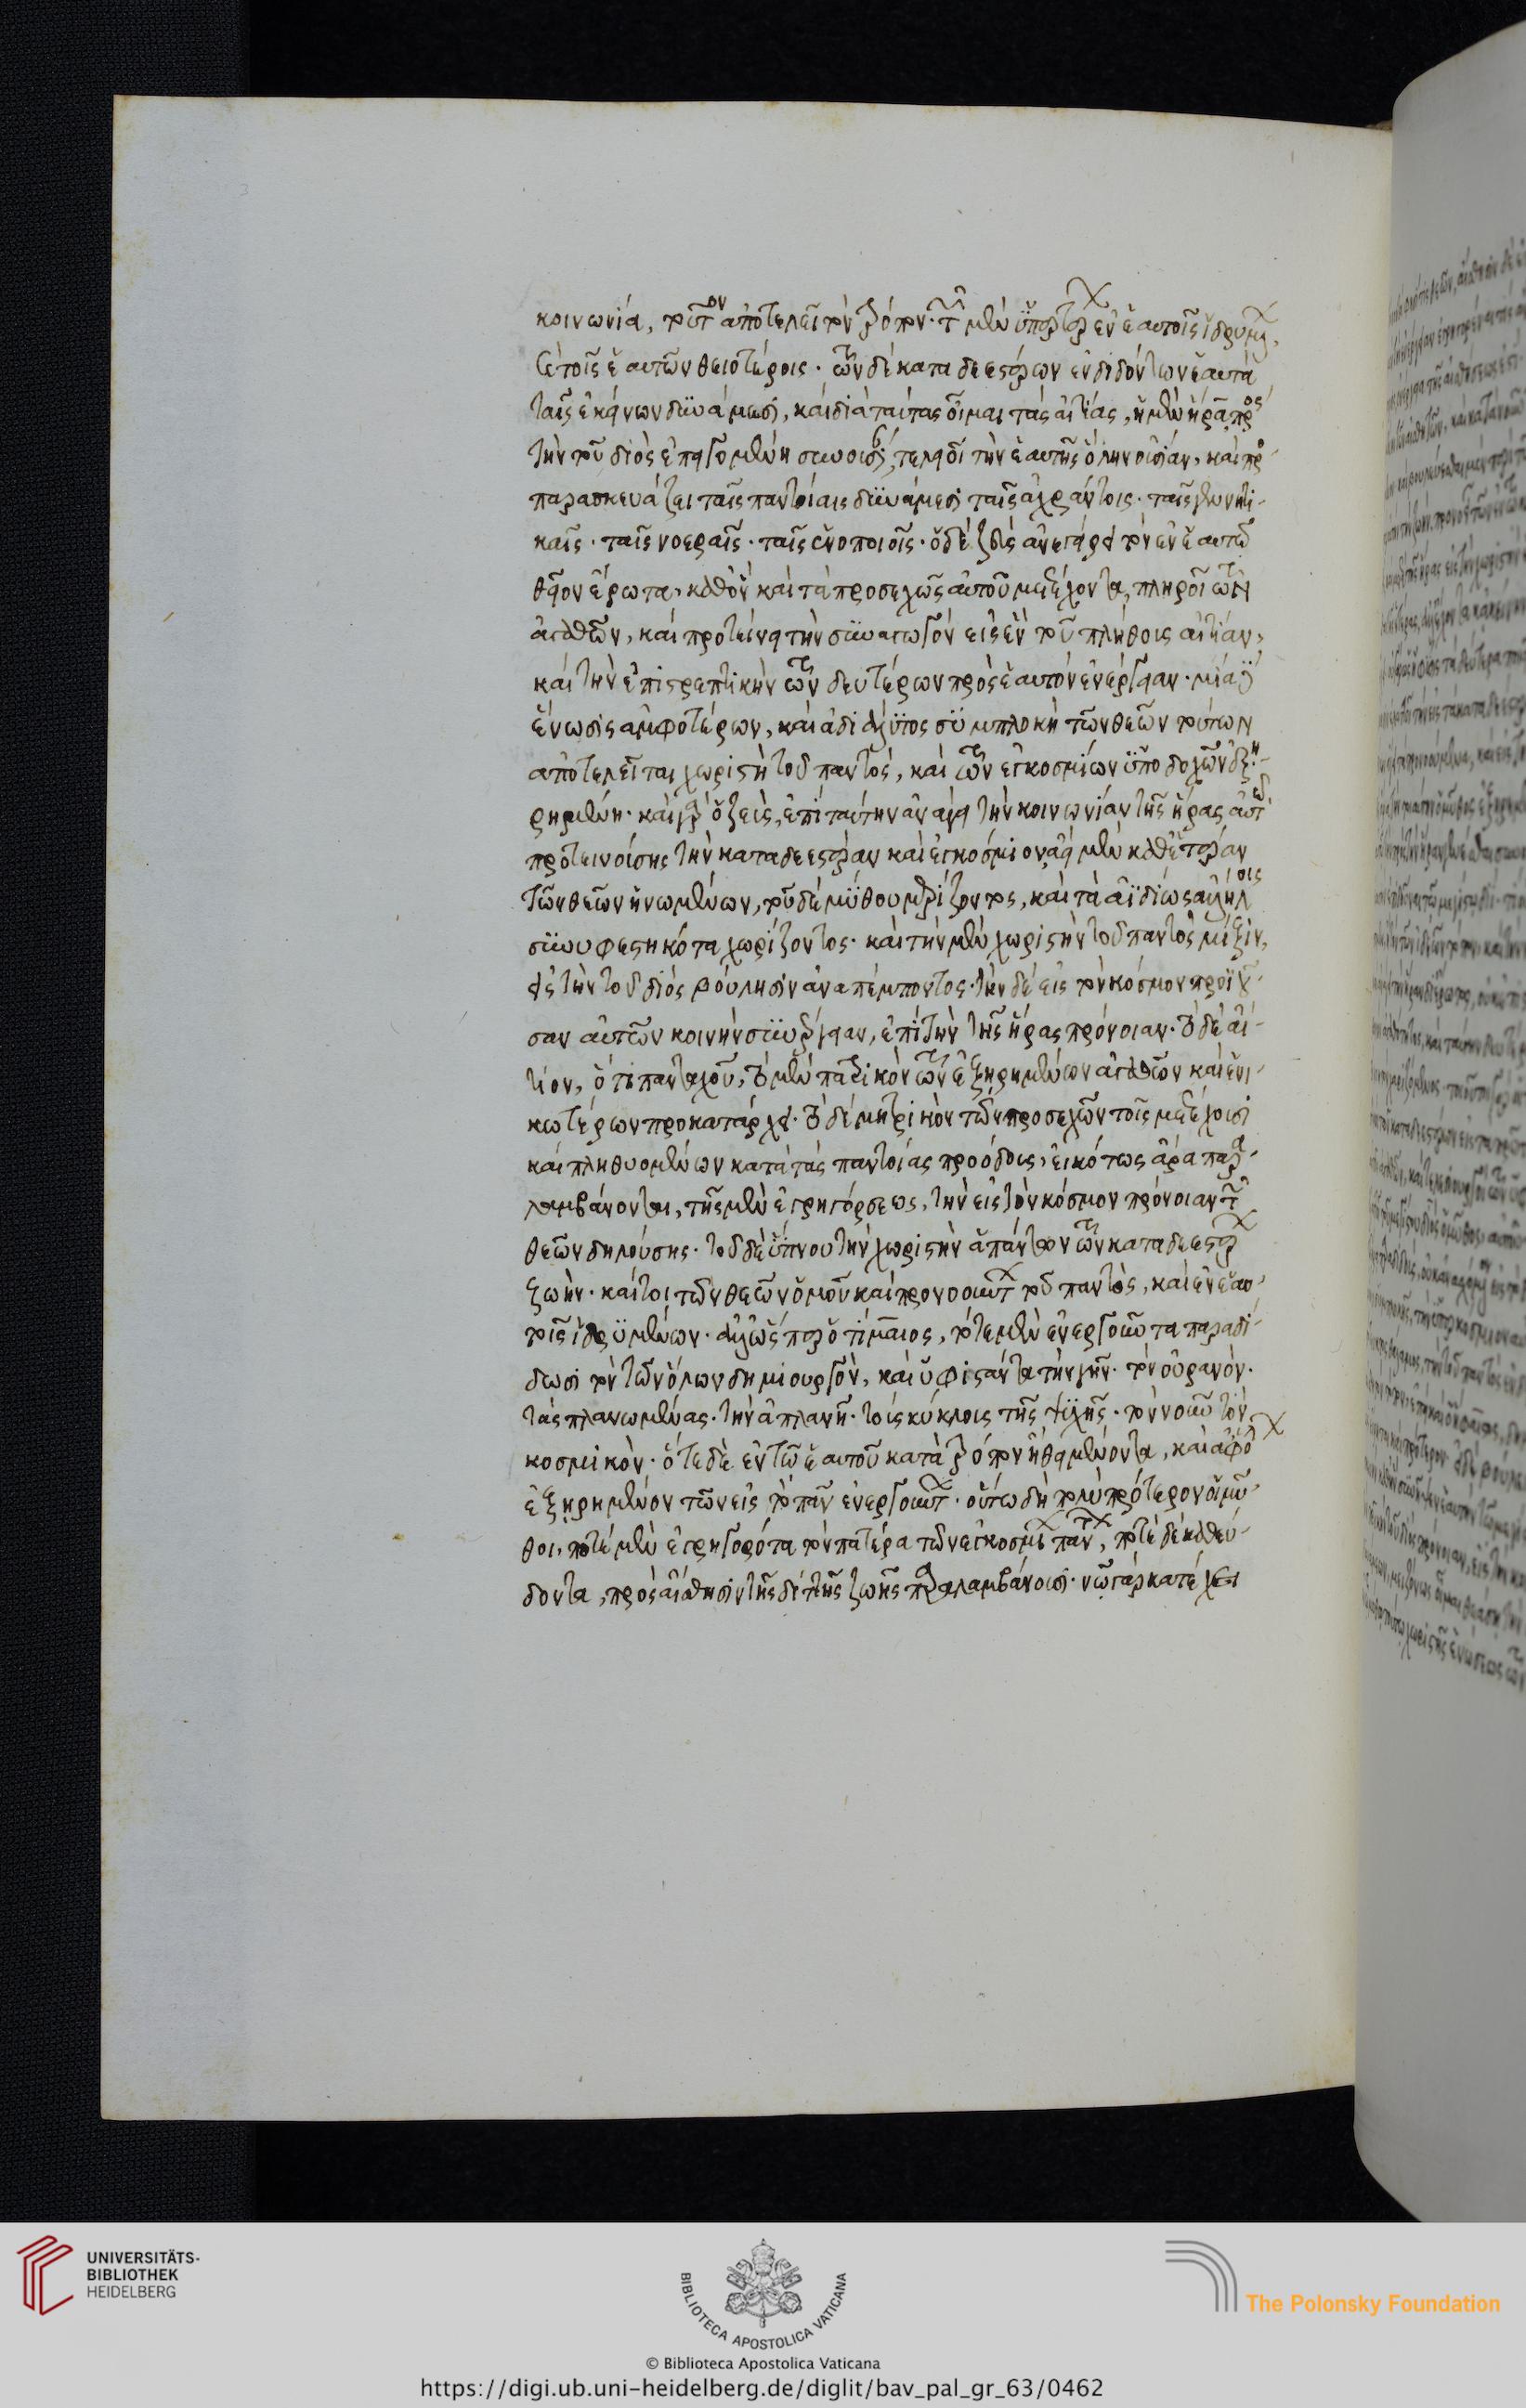 κοινωνία, τοῦτον ἀποτελεῖ τὸν τρόπον· τῶν μὲν ὑπερτέρων ἐν ἑαυτοῖς ἱδρυμένων,
καὶ τοῖς ἑαυτῶν θειοτέροις· τῶν δὲ καταδεεστέρων ἐνδιδόντων ἑαυτὰ
ταῖς ἐκείνων δυνάμεσι, καὶ διὰ ταύτας οἶμαι τὰς αἰτίας, ἡ μὲν ἥρα πρὸς
τὴν τοῦ διὸς ἐπειγομένη συνουσίαν, τελειοῖ τὴν ἑαυτῆς ὅλην οὐσίαν, καὶ προ
παρασκευάζει ταῖς παντοίαις δυνάμεσι ταῖς ἀχράντοις· ταῖς γεννητι
καῖς· ταῖς νοεραῖς· ταῖς ἑνοποιοῖς· ὁ δὲ ζεὺς ἀνεγείρει τὸν ἐν ἑαυτῷ
θεῖον ἔρωτα, καθ' ὃν καὶ τὰ προσεχῶς αὐτοῦ μετέχοντα, πληροῖ τῶν
ἀγαθῶν, καὶ προτείνει τὴν συναγωγὸν εἰς ἓν τοῦ πλήθους αἰτίαν,
καὶ τὴν ἐπιστρεπτικὴν τῶν δευτέρων πρὸς ἑαυτὸν ἐνέργειαν· μία δὲ
ἕνωσις ἀμφοτέρων, καὶ ἀδιάλυτος συμπλοκὴ τῶν θεῶν τούτων
ἀποτελεῖται χωριστὴ τοῦ παντὸς, καὶ τῶν ἐγκοσμίων ὑποδοχῶν ἐξῃ
ρημένη· καὶ γὰρ ὁ ζεὺς, ἐπὶ ταύτην ἀνάγει τὴν κοινωνίαν τῆς ἥρας αὐτῷ
προτεινούσης τὴν καταδεεστέραν καὶ ἐγκόσμιον, ἀεὶ μὲν καθ' ἑτέραν
τῶν θεῶν ἡνωμένων, τοῦ δὲ μύθου μερίζοντος, καὶ τὰ ἀϊδίως ἀλλήλοις
συνυφεστηκότα χωρίζοντος· καὶ τὴν μὲν χωριστὴν τοῦ παντὸς μίξιν,
εἰς τὴν τοῦ διὸς βούλησιν ἀναπέμποντος· τὴν δὲ εἰς τὸν κόσμον προϊοῦ
σαν αὐτῶν κοινὴν συνέργειαν, ἐπὶ τὴν τῆς ἥρας πρόνοιαν· τὸ δὲ αἴ
τιον, ὅτι πανταχοῦ, τὸ μὲν πατρικὸν τῶν ἐξῃρημένων ἀγαθῶν καὶ ἑνι
κωτέρων προκατάρχει· τὸ δὲ μητρικὸν τῶν προσεχῶν τοῖς μετέχουσι
καὶ πληθυομένων κατὰ τὰς παντοίας προόδους, εἰκότως ἄρα παρα
λαμβάνονται, τῆς μὲν ἐγρηγόρσεως, τὴν εἰς τὸν κόσμον πρόνοιαν τῶν
θεῶν δηλούσης· τοῦ δὲ ὕπνου τὴν χωριστὴν ἁπάντων τῶν καταδεεστέρων
ζωὴν· καίτοι τῶν θεῶν ὁμοῦ καὶ προνοούντων τοῦ παντὸς, καὶ ἐν ἑαυ
τοῖς ἱδρυμένων· ἀλλ' ὥσπερ ὁ τίμαιος, τότε μὲν ἐνεργοῦντα παραδί
δωσι τὸν τῶν ὅλων δημιουργὸν, καὶ ὑφιστάντα τὴν γῆν· τὸν οὐρανὸν·
τὰς πλανωμένας· τὴν ἀπλανῆ· τοὺς κύκλους τῆς ψυχῆς· τὸν νοῦν τὸν
κοσμικὸν· ὁτὲ δὲ ἐν τῷ ἑαυτοῦ κατὰ τρόπον ἤθει μένοντα, καὶ ἀφ' ὅλων
ἐξῃρημένον τῶν εἰς τὸ πᾶν ἐνεργούντων· οὕτω δὴ πολὺ πρότερον οἱ μῦ
θοι, ποτὲ μὲν ἐγρηγορότα τὸν πατέρα τῶν ἐγκοσμίων πάντων, ποτὲ δὲ καθεύ
δοντα, πρὸς αἴσθησιν τῆς διττῆς ζωῆς παραλαμβάνουσι· νῷ γὰρ κατέχει
UNIVERSITÄTS-
BIBLIOTHEK
HEIDELBERG
BIBLIOTECA APOSTOLICA VATICANA
The Polonsky Foundation
© Biblioteca Apostolica Vaticana
https://digi.ub.uni-heidelberg.de/diglit/bav_pal_gr_63/0462